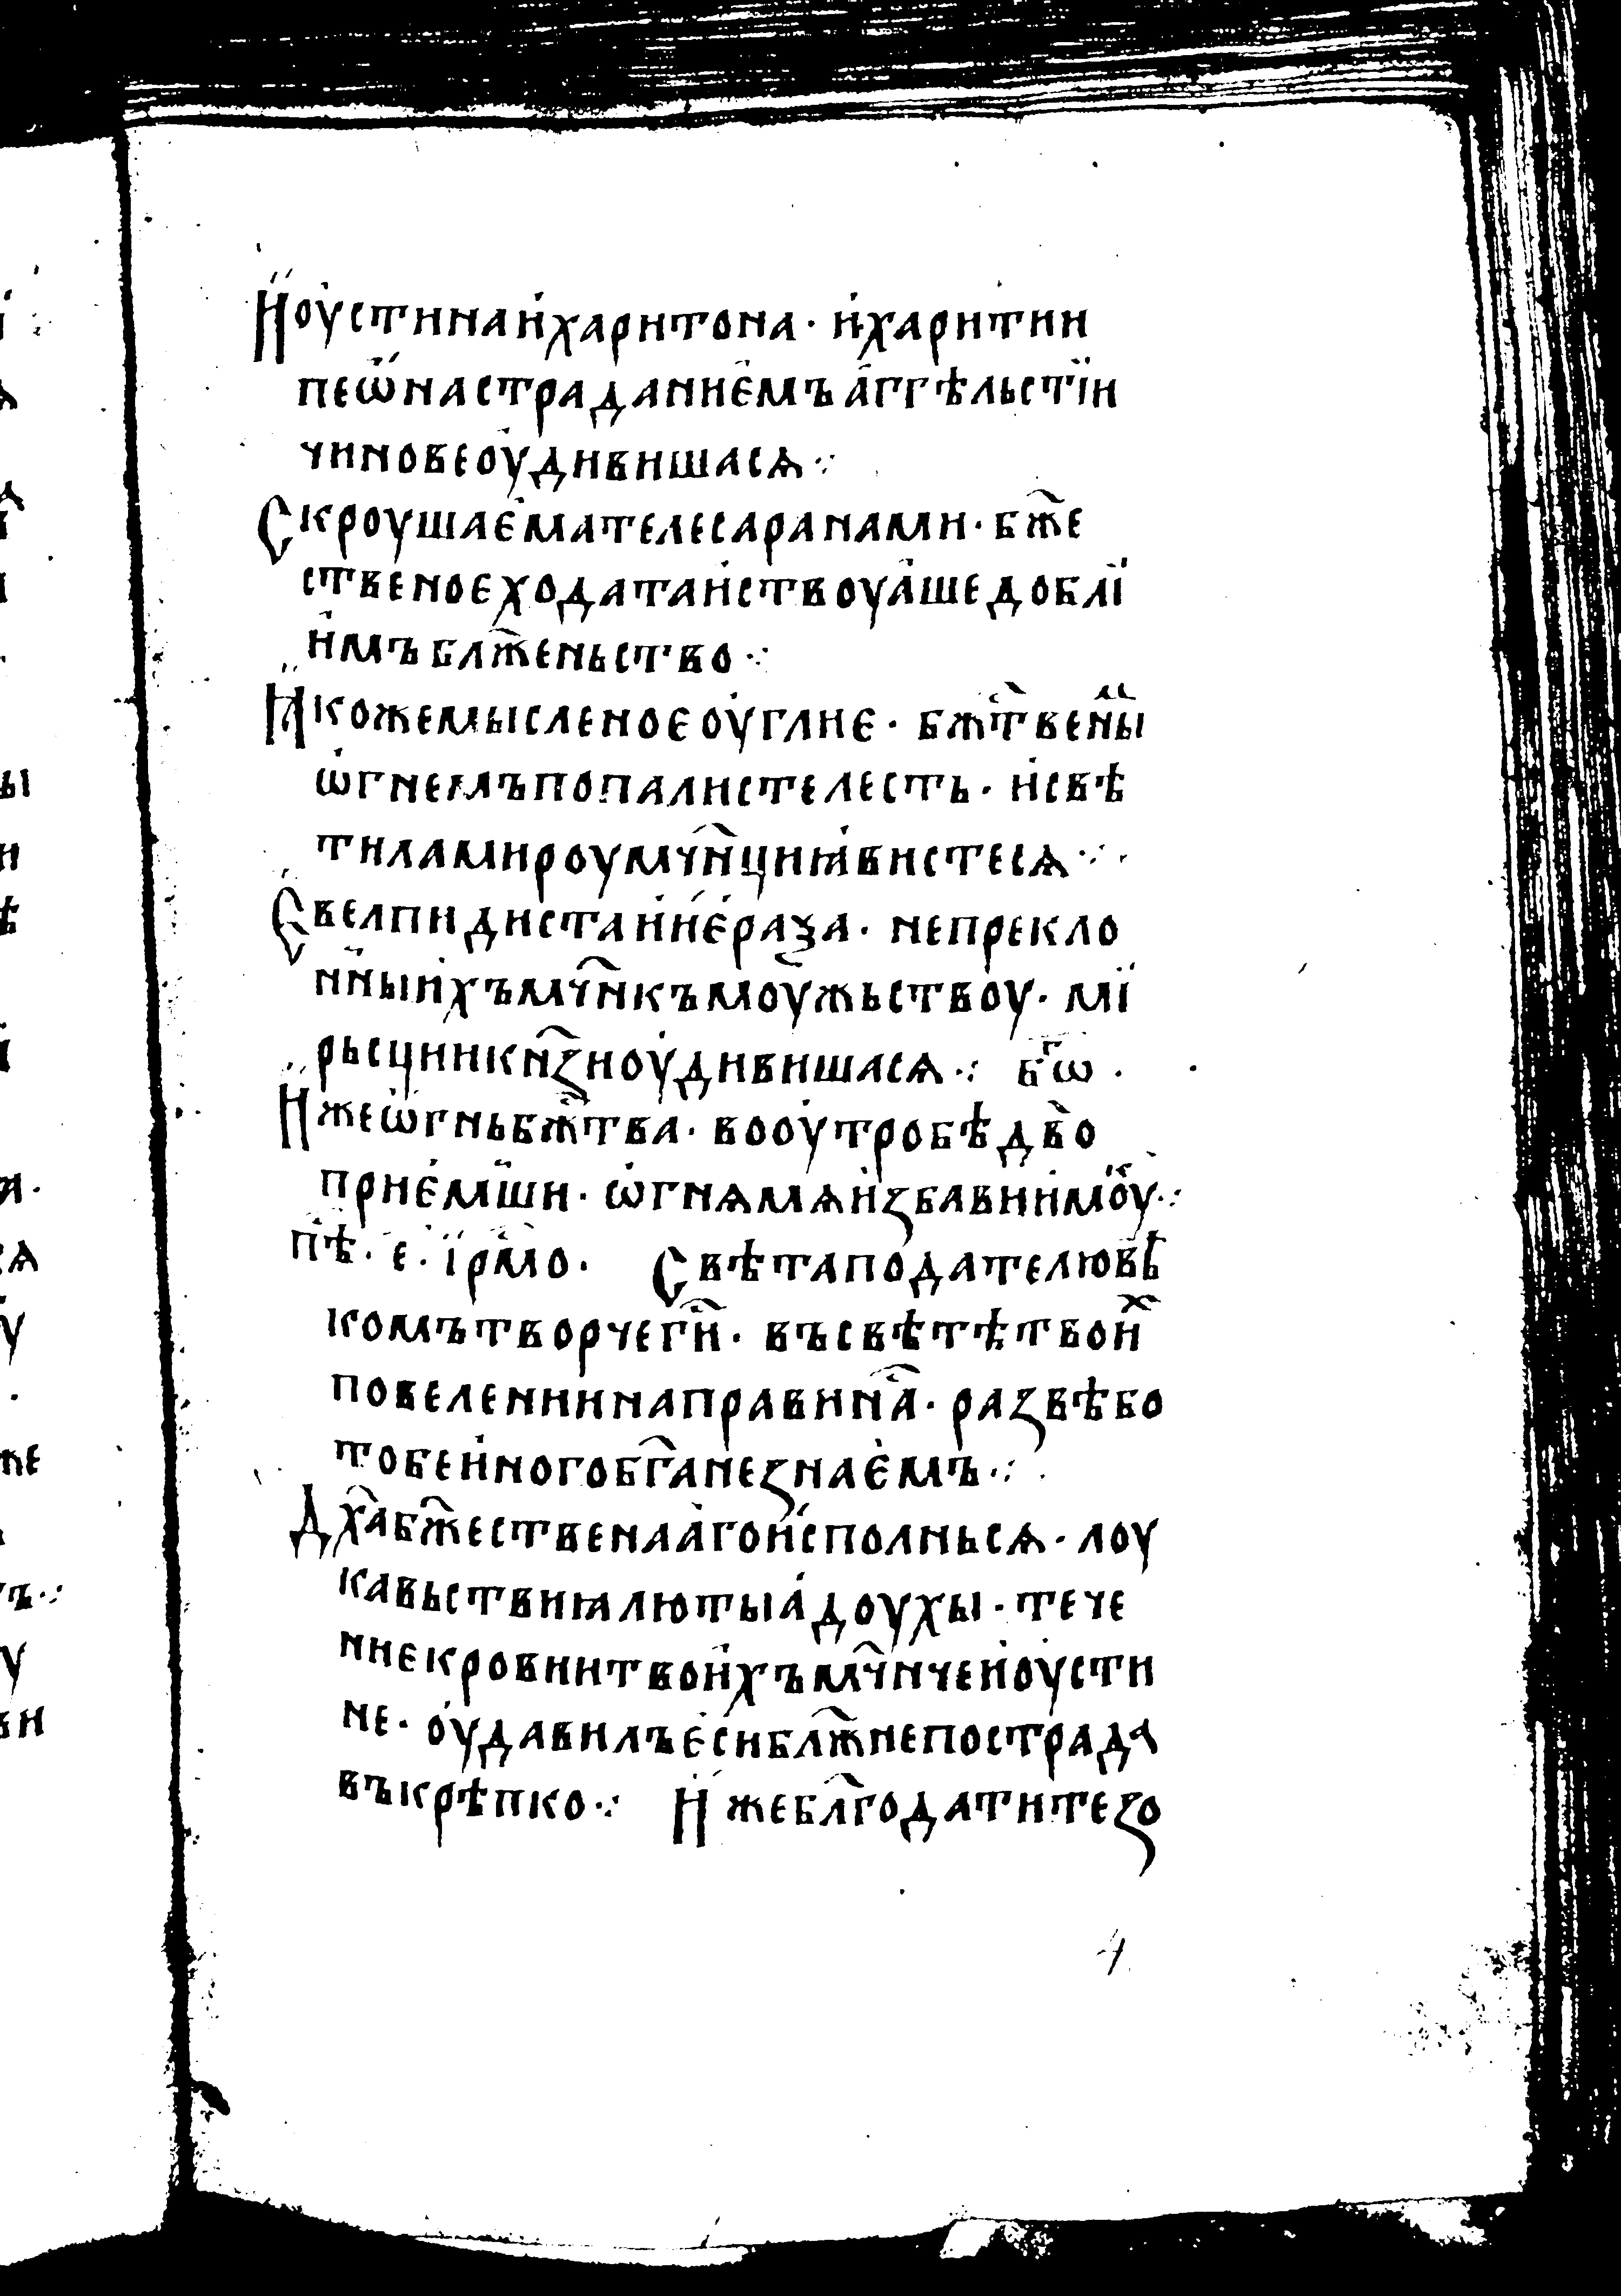 Иоустинаихаритона · ихаритии
пеѿнастраданиемъаггѣльстїи
чиновеоудивишасѧ ⁘
Скроушаематѣлесаранами · бж҃е
ственоеходатаиствоуашедоблї
имъблж҃еньство ⁘
Ꙗкожемысленоеоуглие · бжⷭ҇твенꙑⷨ
ѡгнемъпопалистелесть · исвѣ
тиламироумч҃нциꙗвистесѧ ⁘
Євелпидистаииераѯа · непрекло
нныихъмч҃нкъмоужьствоу · мї
рьсциикн҃ꙁиоудивишасѧ ⁘ бⷢ҇ѡ ·
Ижеѡгньбжⷭ҇тва · вооутробѣдв҃о
приемши · ѡгнѧмѧиꙁбавиимоу ⁘
пѣ · е · їрмо · Свѣтаподателювѣ
комътворчеги҃ · въсвѣтѣтвоиⷯ
повелениинаправин҃а · раꙁвѣбо
тобеиногобг҃анеꙁнаемъ ⁘
Дх҃абж҃ественаагоисполньсѧ · лоу
кавьствиꙗлютыадоухы · тече
ниекровиитвоихъмч҃ничеиоусти
не · оудавилъесиблж҃непострада
въкрѣпко ⁘ Ижебл҃годатитеꙁо
4